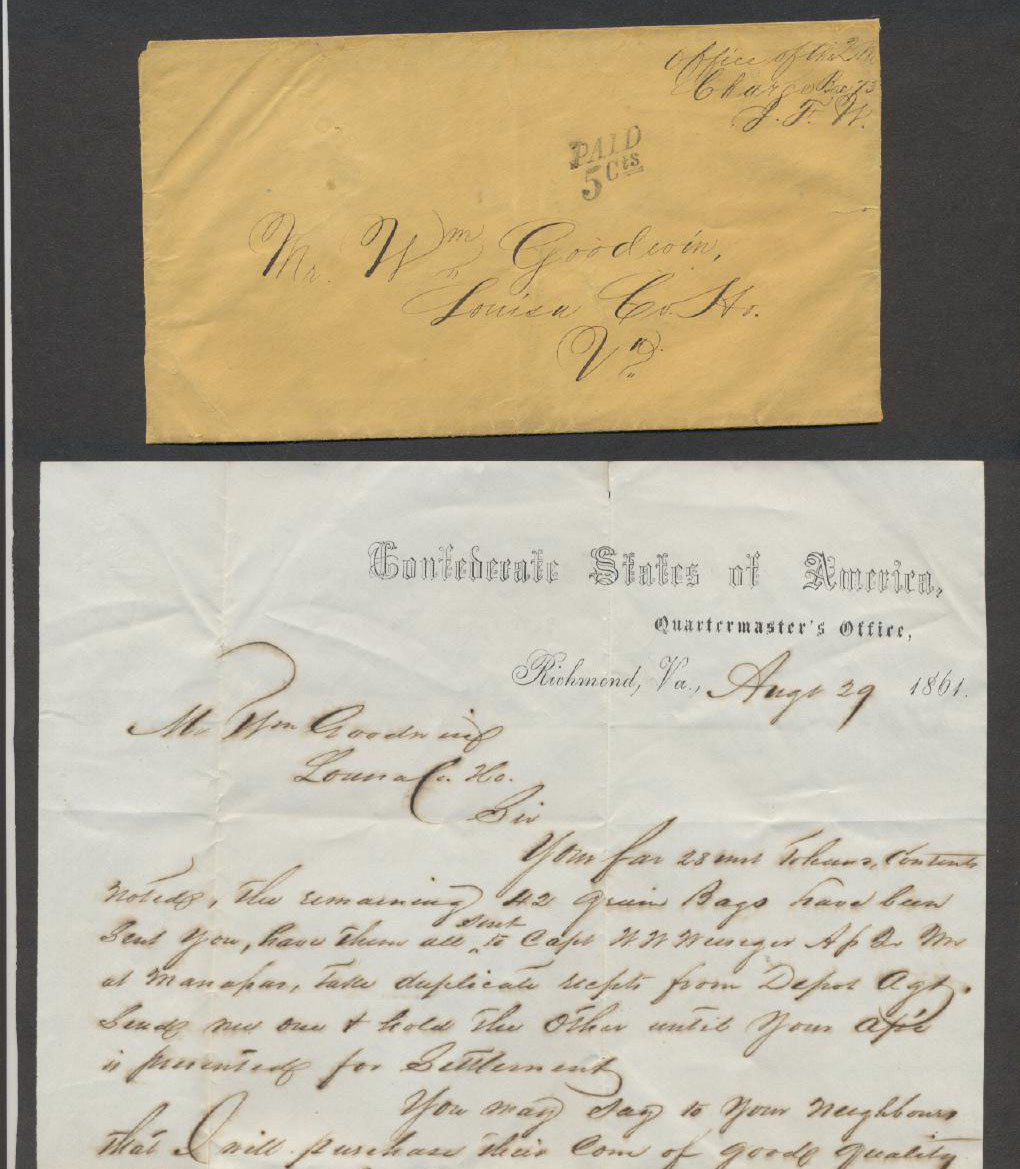 Office of the
Charge Box 73
J. F. W.
PAID
5 Cts
Mr. Wm Goodwin,
Louisa Co. Ho.
Va.
Confederate States of America,
Quartermaster's Office,
Richmond, Va., Augt 29 1861.
Mr Wm Goodwin
Louisa Co. Ho.
Sir
Your fav 28 inst Tohand, Contents
noted, The remaining 42 Grain Bags have been
Sent You, have them all sent to Capt W W Weisiger A Q Mr
at Manassas, Take duplicate recpts from Depot Agt.
Send me one & hold the other until Your
is presented for Settlement
You may Say to Your Neighbours
that I will purchase their Corn of good quality